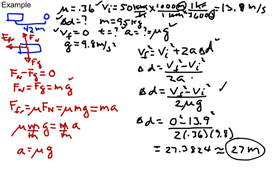 Example
μ = .36 Vi = 50 km/h × 1000m/1km × 1h/3600s = 13.8 m/s
Δd = ? m = 95 kg
Vf = 0 t = ? a = ? = μg
g = 9.8 m/s²
42m
Ffr FN
Fg
FN - Fg = 0
FN = Fg = mg
Ffr = μFN = μmg = ma
μmg = ma
a = μg
Vf² = Vi² + 2aΔd
Δd = Vf² - Vi² / 2a
Δd = Vf² - Vi² / 2μg
Δd = 0² - 13.9² / 2(.36)(9.8)
= 27.3824 ≈ 27m